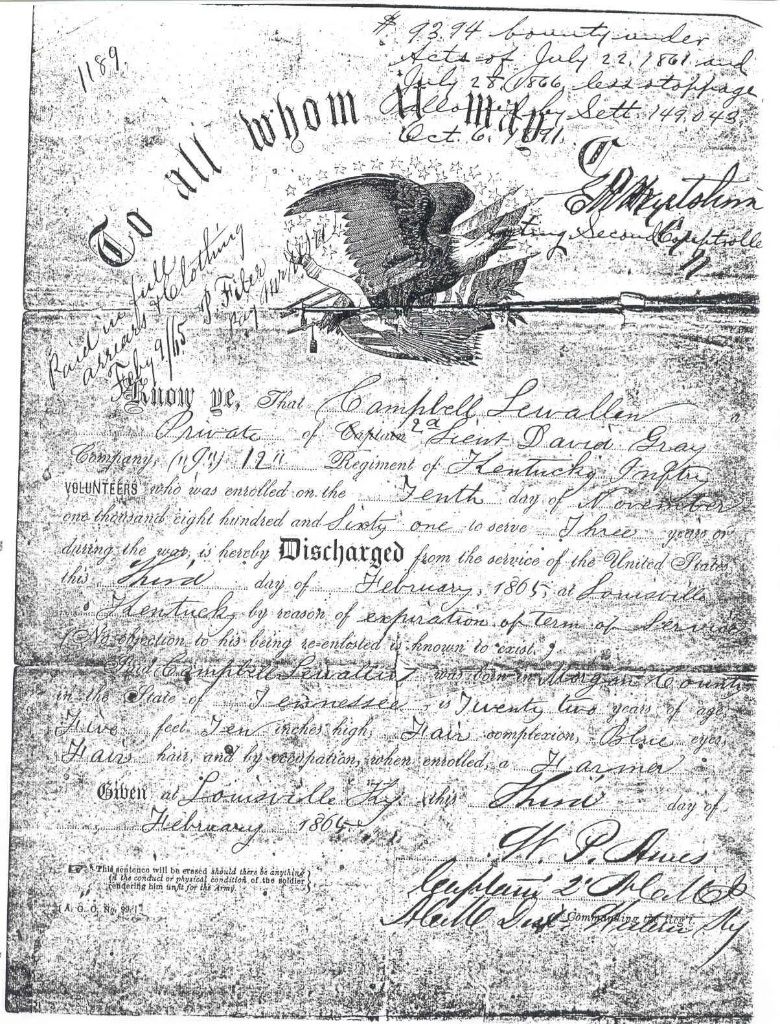 1189.
$ 93.94 bounty under
Acts of July 22, 1861 and
July 28, 1866, less stoppage
by Sett. 149.043
Oct. 6,
Second Comptroller
To all whom it may C
Paid in full
arrears & Clothing
Feby 9/65
Know ye, That Campbell Lewallen a
Private of Captain 2d Lieut David Gray
Company, ("G") 12" Regiment of Kentucky Inftry
VOLUNTEERS who was enrolled on the Tenth day of November
one thousand eight hundred and Sixty one to serve Three years or
during the war, is hereby Discharged from the service of the United States
this Third day of February, 1865, at Louisville
Kentucky by reason of expiration of term of Service
(No objection to his being re-enlisted is known to exist.)
Said Campbell Lewallen was born in Morgan County
in the State of Tennessee, is Twenty two years of age,
Five feet Ten inches high, Fair complexion, Blue eyes,
Fair hair, and by occupation, when enrolled, a Farmer
Given at Louisville Ky. this Third day of
February 1865
W. P. Ames
Captain 2"
Commanding the Reg't.
This sentence will be erased should there be anything
in the conduct or physical condition of the soldier
rendering him unfit for the Army.
[A. G. O. No. 99.]